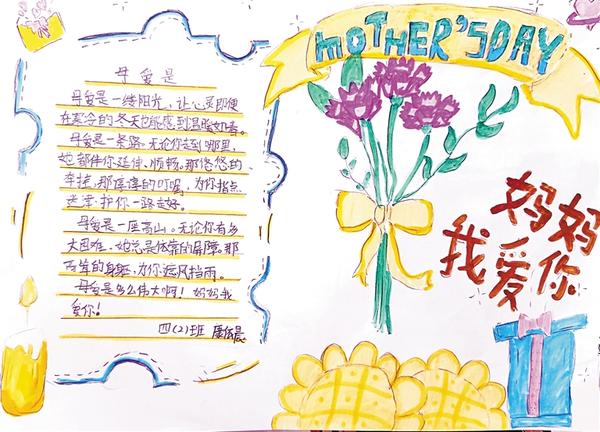 MOTHER'S DAY
母爱是
母爱是一缕阳光,让心灵即使
在寒冷的冬天也能感到温暖如春。
母爱是一条路,无论你走到哪里,
她都伴你延伸、顺畅。那悠悠的
牵挂,那谆谆的叮咛,为你指点
迷茫,护你一路走好。
母爱是一座高山。无论你有多
大困难,她总是依靠的屏障。那
高耸的身躯,为你遮风挡雨。
母爱是多么伟大啊!妈妈我
爱你!
四(2)班
妈妈
我爱你